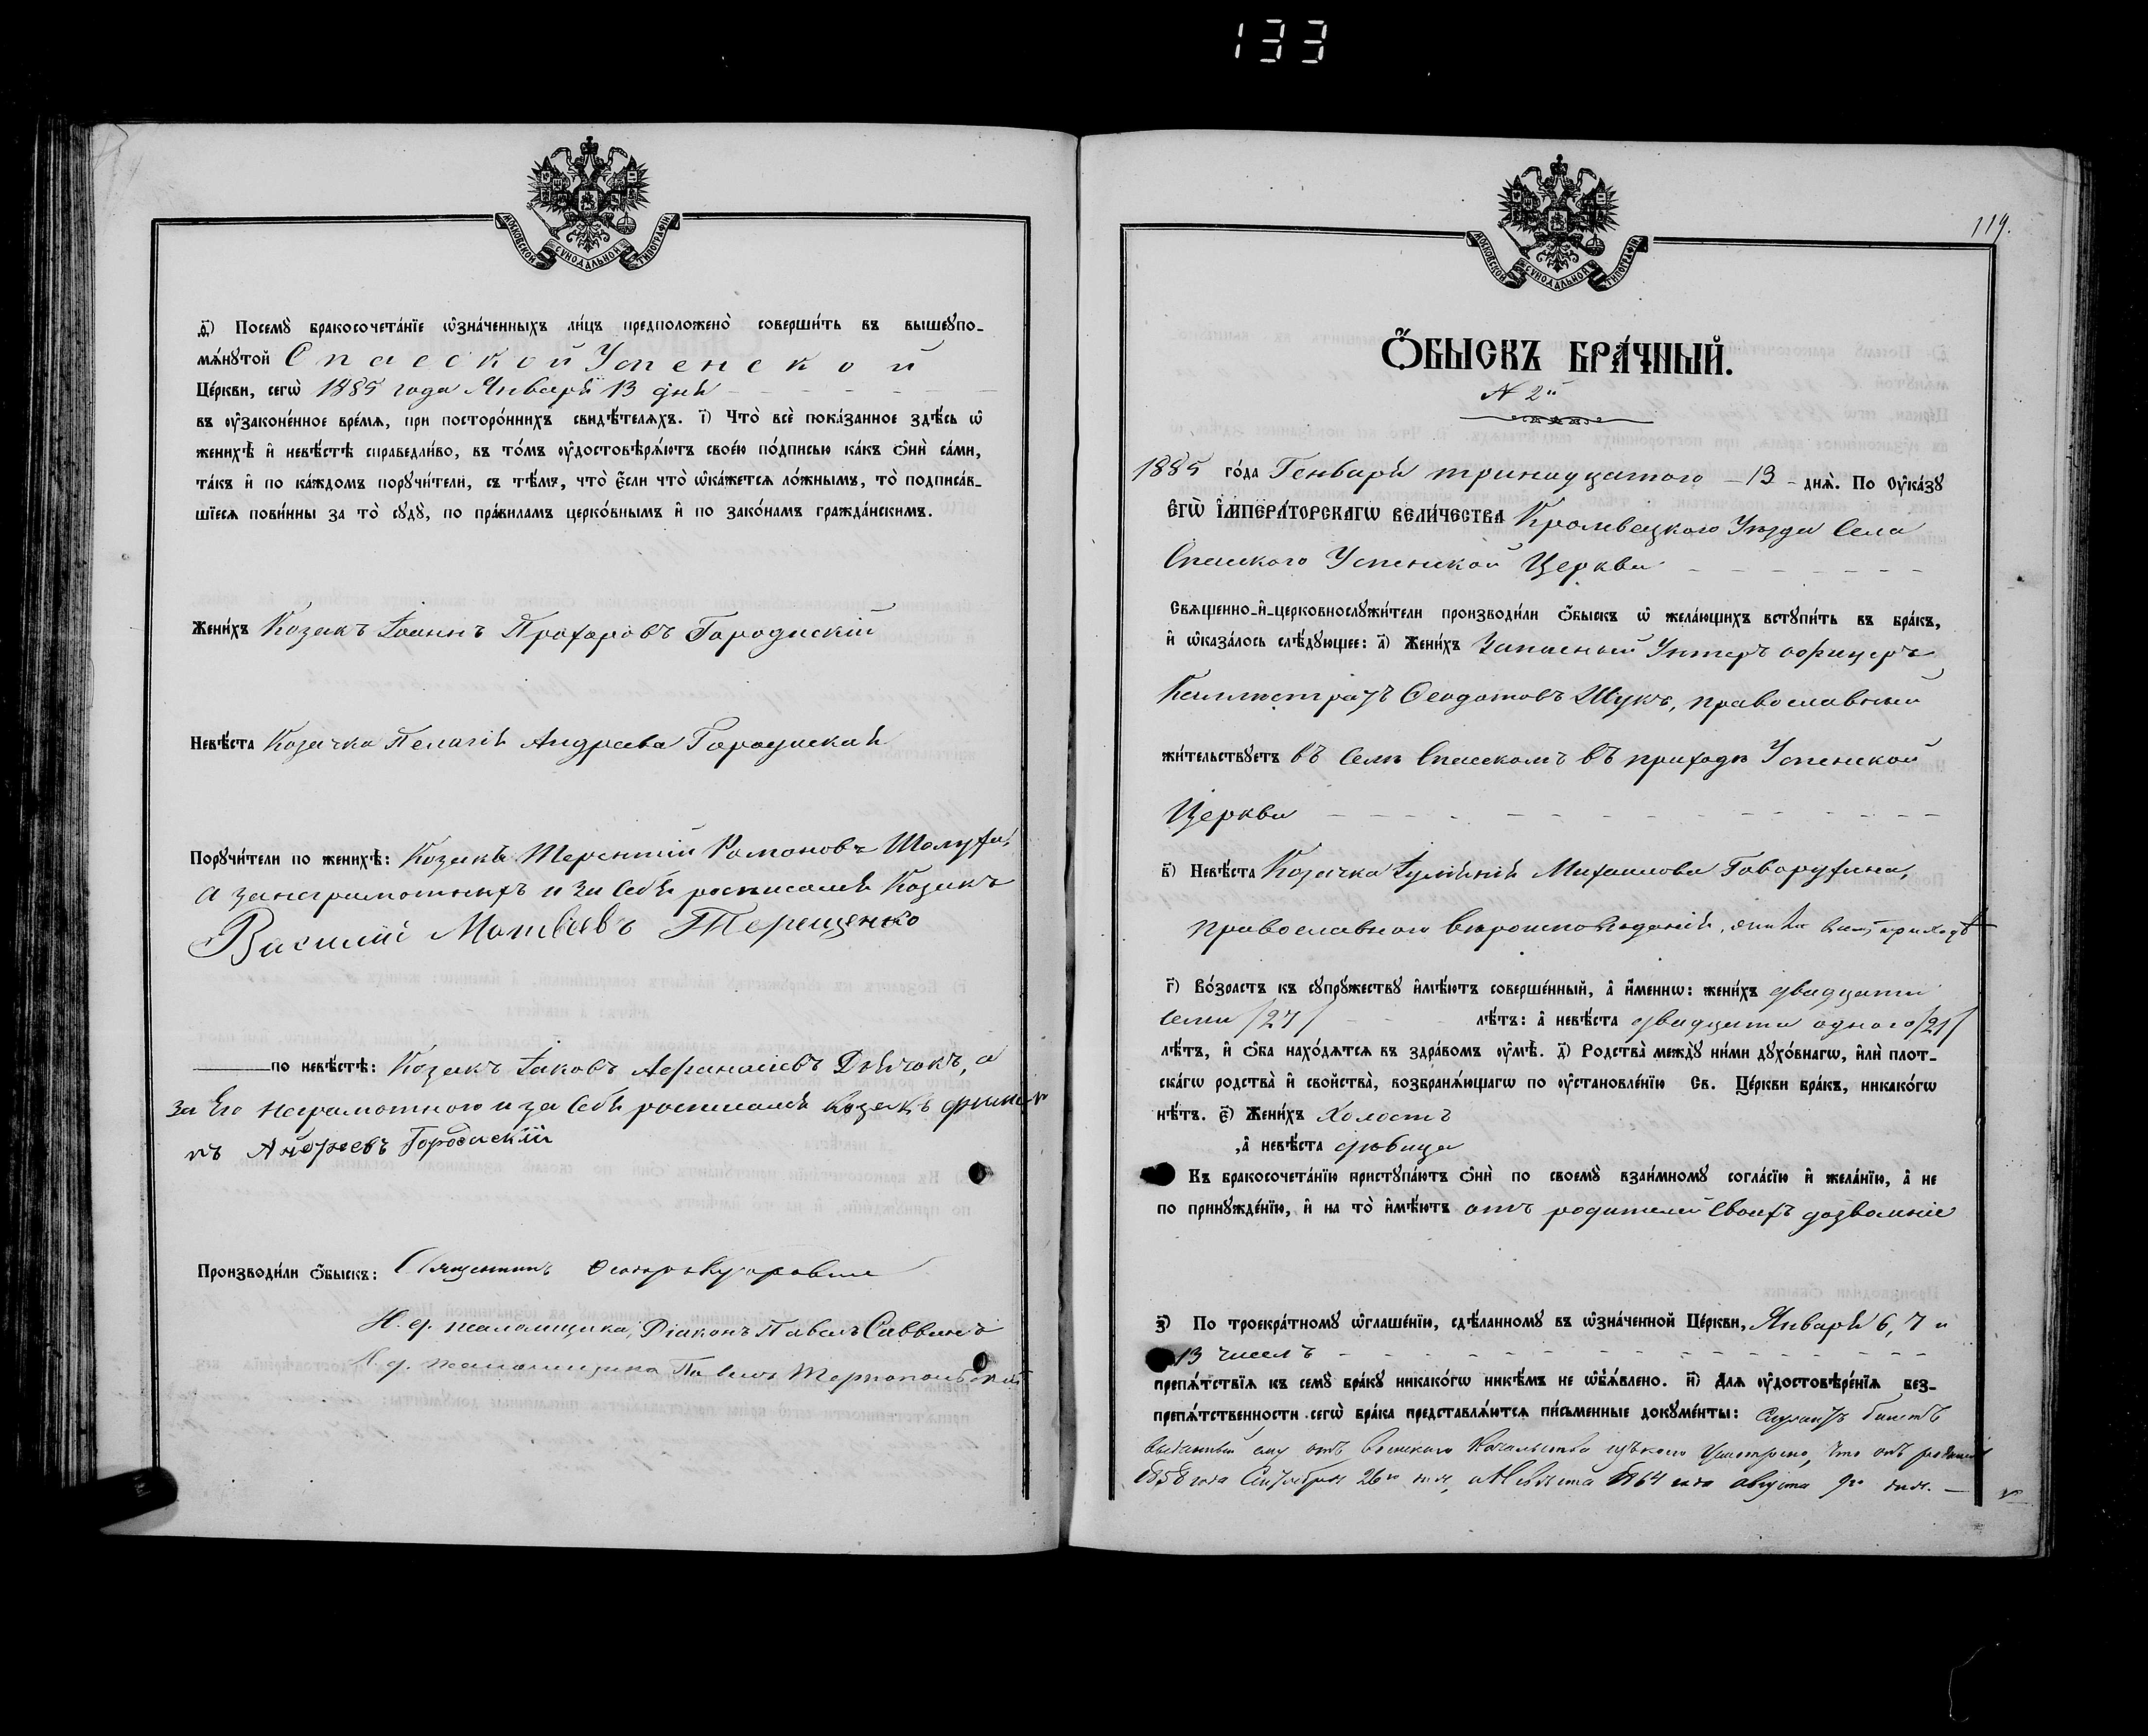 133
МОСКОВСКОЙ СѴНОДАЛЬНОЙ ТИПОГРАФІИ
д҃) Посемꙋ̀ бракосочета́нїе ѡ҆зна́ченныхъ ли́цъ предположено̀ соверши́ть въ вышеꙋпо-
мѧ́нꙋтой Спасской Успенской
Це́ркви, сегѡ̀ 1885 года Января 13 дня
въ ᲂу҆законе́нное вре́мѧ, при посторо́ннихъ свидѣ́телѧхъ. і҃) Что̀ всѐ пока́занное здѣ́сь ѡ҆
женихѣ̀ и҆ невѣ́стѣ справедли́во, въ то́мъ ᲂу҆достовѣрѧ́ютъ свое́ю по́дписью ка́къ ѻ҆нѝ са́ми,
та́къ и҆ по ка́ждомъ порꙋчи́тели, съ тѣ́мъ, что̀ є҆́сли что̀ ѡ҆ка́жетсѧ ло́жнымъ, то̀ подписа́в-
шїесѧ пови́нны за то̀ сꙋдꙋ̀, по пра́виламъ церко́внымъ и҆ по зако́намъ гражда́нскимъ.
Жени́хъ Козакъ Іоаннъ Прохоровъ Городискій
Невѣ́ста Козачка Пелагія Андреева Городиская
Порꙋчи́тели по женихѣ̀: Козакъ Терентій Романовъ Шолуха,
а за неграмотныхъ и за себя росписался Козакъ
Василій Матвѣевъ Терещенко
по невѣ́стѣ: Козакъ Іаковъ Афанасіевъ Дьячокъ, а
за Его неграмотного и за себя росписался Козакъ Фили
пъ Андреевъ Городискій
Производи́ли ѻ҆́быскъ: Священникъ
И. д. псаломщика, Діаконъ Павелъ Саввинъ
И. д. псаломщика Павелъ Тернопольскій
119.
МОСКОВСКОЙ СѴНОДАЛЬНОЙ ТИПОГРАФІИ
Ѻ҆́БЫСКЪ БРА́ЧНЫЙ.
№ 2й
1885 го́да Генваря тринадцатого -13- днѧ̀. По Оу҆ка́зꙋ
Є҆ГѠ̀ І҆МПЕРА́ТОРСКАГѠ ВЕЛИ́ЧЕСТВА Кролевецкого Уѣзда Села
Спасского Успенской Церкви
Сващенно-и҆-церковнослꙋжи́тели производи́ли ѻ҆́быскъ ѡ҆ жела́ющихъ встꙋпи́ть въ бра́къ,
и҆ ѡ҆каза́лось слѣ́дꙋющее: а҃) Жени́хъ Запасный Унтеръ офицеръ
Каллистратъ Феодотовъ Щукъ, православный
жи́тельствꙋетъ въ Селѣ Спасскомъ въ приходѣ Успенской
Церкви
в҃) Невѣ́ста Козачка Іуліанія Михаилова Говорухина,
православного вѣроисповѣданія,
г҃) Во́зрастъ къ сꙋпрꙋ́жествꙋ и҆мѣ́ютъ соверше́нный, а҆ и҆́меннѡ: жени́хъ двадцати
семи /27/ лѣ́тъ: а҆ невѣ́ста двадцати одного /21/
лѣ́тъ, и҆ ѻ҆́ба нахо́дѧтсѧ въ здра́вомъ ᲂу҆мѣ̀. д҃) Родства̀ междꙋ̀ ни́ми дꙋхо́внагѡ, и҆лѝ плот-
ска́гѡ родства̀ и҆ сво́йства, возбранѧ́ющагѡ по ᲂу҆становле́нїю Св. Це́ркви бра́къ, никако́гѡ
нѣ́тъ. є҃) Жени́хъ Холостъ
,а҆ невѣ́ста дѣвица
Къ бракосочета́нїю пристꙋпа́ютъ ѻ҆нѝ по своемꙋ̀ взаи́мномꙋ согла́сїю и҆ жела́нїю, а҆ не
по принꙋжде́нїю, и҆ на то̀ и҆мѣ́ютъ отъ родителей своихъ дозволеніе
з҃) По троекра́тномꙋ ѡ҆глаше́нїи, сдѣ́ланномꙋ въ ѡ҆зна́ченной Це́ркви, Января 6, 7 и
13 чиселъ
препѧ́тствїѧ къ семꙋ̀ бра́кꙋ никако́гѡ никѣ́мъ не ѡ҆б̾ѧ́влено. и҃) Длѧ ᲂу҆достовѣре́нїѧ без-
препѧ́тственности сегѡ̀ бра́ка представлѧ́ютсѧ пи́сьменные докꙋме́нты: билетъ
выданный ему отъ Воинского Начальства что онъ
1858 года Сентября 26го дня, а Невѣста 1864 года августа 9го дня.